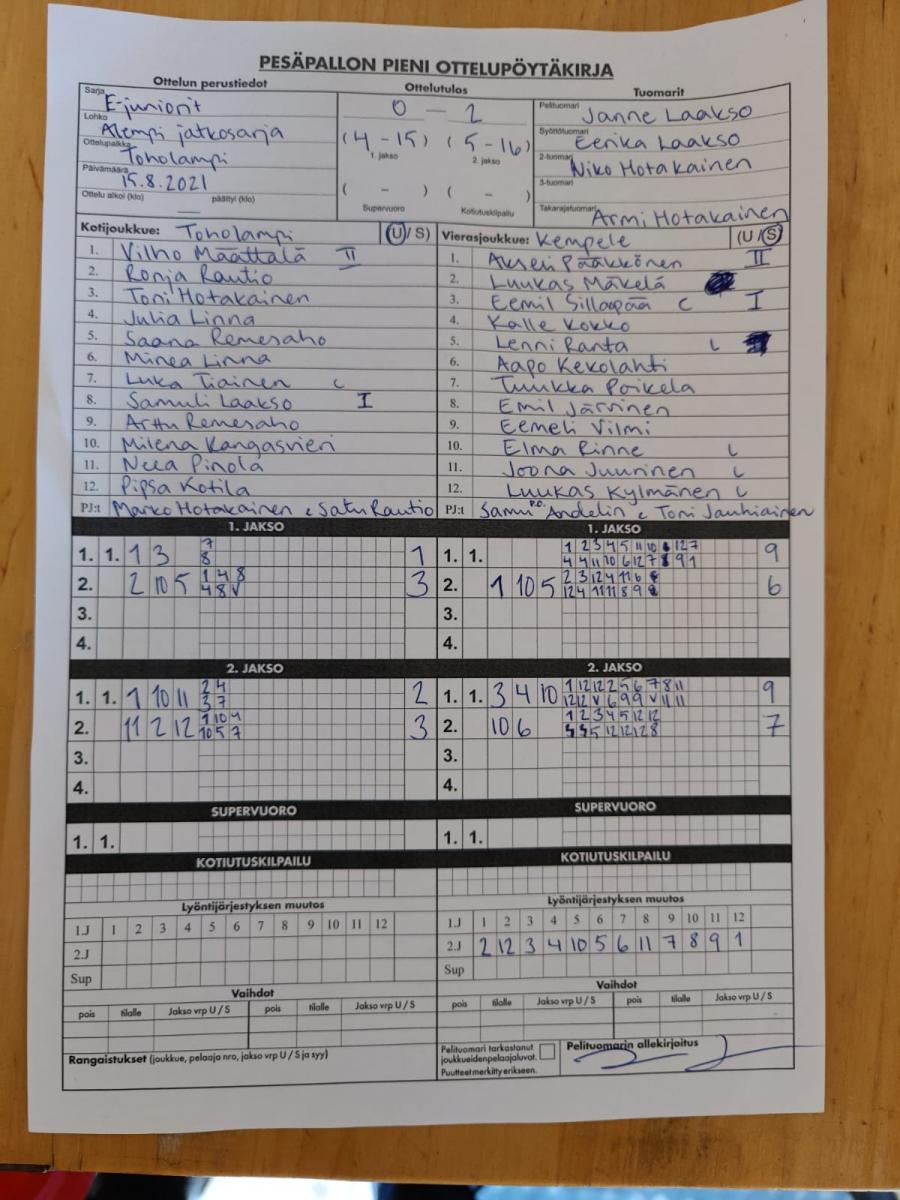 PESÄPALLON PIENI OTTELUPÖYTÄKIRJA
Ottelun perustiedot Ottelutulos Tuomarit
Sarja E-juniorit
Lohko Alempi jatkosarja
Ottelupaikka Toholampi
Päivämäärä 15.8.2021
Ottelu alkoi (klo) päättyi (klo)
0 - 2
(4 - 15) (5 - 16)
1. jakso 2. jakso
( - ) ( - )
Supervuoro Kotiutuskilpailu
Pelituomari Janne Laakso
Syöttötuomari Eerika Laakso
2-tuomari Niko Hotakainen
3-tuomari
Takarajatuomari Armi Hotakainen
Kotijoukkue: Toholampi (U / S)
1. Vilho Määttälä II
2. Ronja Rautio
3. Toni Hotakainen
4. Julia Linna
5. Saana Remesaho
6. Minea Linna
7. Luka Tiainen c
8. Samuli Laakso I
9. Arttu Remesaho
10. Milena Kangasvieri
11. Neea Pinola
12. Pipsa Kotila
PJ:t Marko Hotakainen & Satu Rautio
Vierasjoukkue: Kempele (U / S)
1. Akseli Pääkkönen II
2. Luukas Mäkelä
3. Eemil Sillanpää C I
4. Kalle Kokko
5. Lenni Ranta L
6. Aapo Kekolahti
7. Tuukka Poikela
8. Emil Järvinen
9. Eemeli Vilmi
10. Elma Rinne L
11. Joona Juurinen L
12. Luukas Kylmänen L
PJ:t Samu P.O. Andelin & Toni Jauhiainen
1. JAKSO
1. 1. 1 3 7 1
8
2. 2 10 5 1 4 8 3
4 8 V
3.
4.
1. JAKSO
1. 1. 1 2 3 4 5 11 10 6 12 7 9
4 4 11 10 6 12 7 8 9 1
2. 1 10 5 2 3 12 4 11 6 6
12 4 11 11 8 9
3.
4.
2. JAKSO
1. 1. 1 10 11 2 4 2
3 7
2. 11 2 12 1 10 4 3
10 5 7
3.
4.
2. JAKSO
1. 1. 3 4 10 1 12 12 2 5 6 7 8 11 9
12 12 V 6 9 9 V 11 11
2. 10 6 1 2 3 4 5 12 12 7
3 5 12 12 12 8
3.
4.
SUPERVUORO
1. 1.
SUPERVUORO
1. 1.
KOTIUTUSKILPAILU
KOTIUTUSKILPAILU
Lyöntijärjestyksen muutos
1.J 1 2 3 4 5 6 7 8 9 10 11 12
2.J
Sup
Lyöntijärjestyksen muutos
1.J 1 2 3 4 5 6 7 8 9 10 11 12
2.J 2 12 3 4 10 5 6 11 7 8 9 1
Sup
Vaihdot
pois tilalle Jakso vrp U / S pois tilalle Jakso vrp U / S
Vaihdot
pois tilalle Jakso vrp U / S pois tilalle Jakso vrp U / S
Rangaistukset (joukkue, pelaaja nro, jakso vrp U / S ja syy)
Pelituomari tarkastanut
joukkueidenpelaajaluvat.
Puutteet merkitty erikseen.
Pelituomarin allekirjoitus